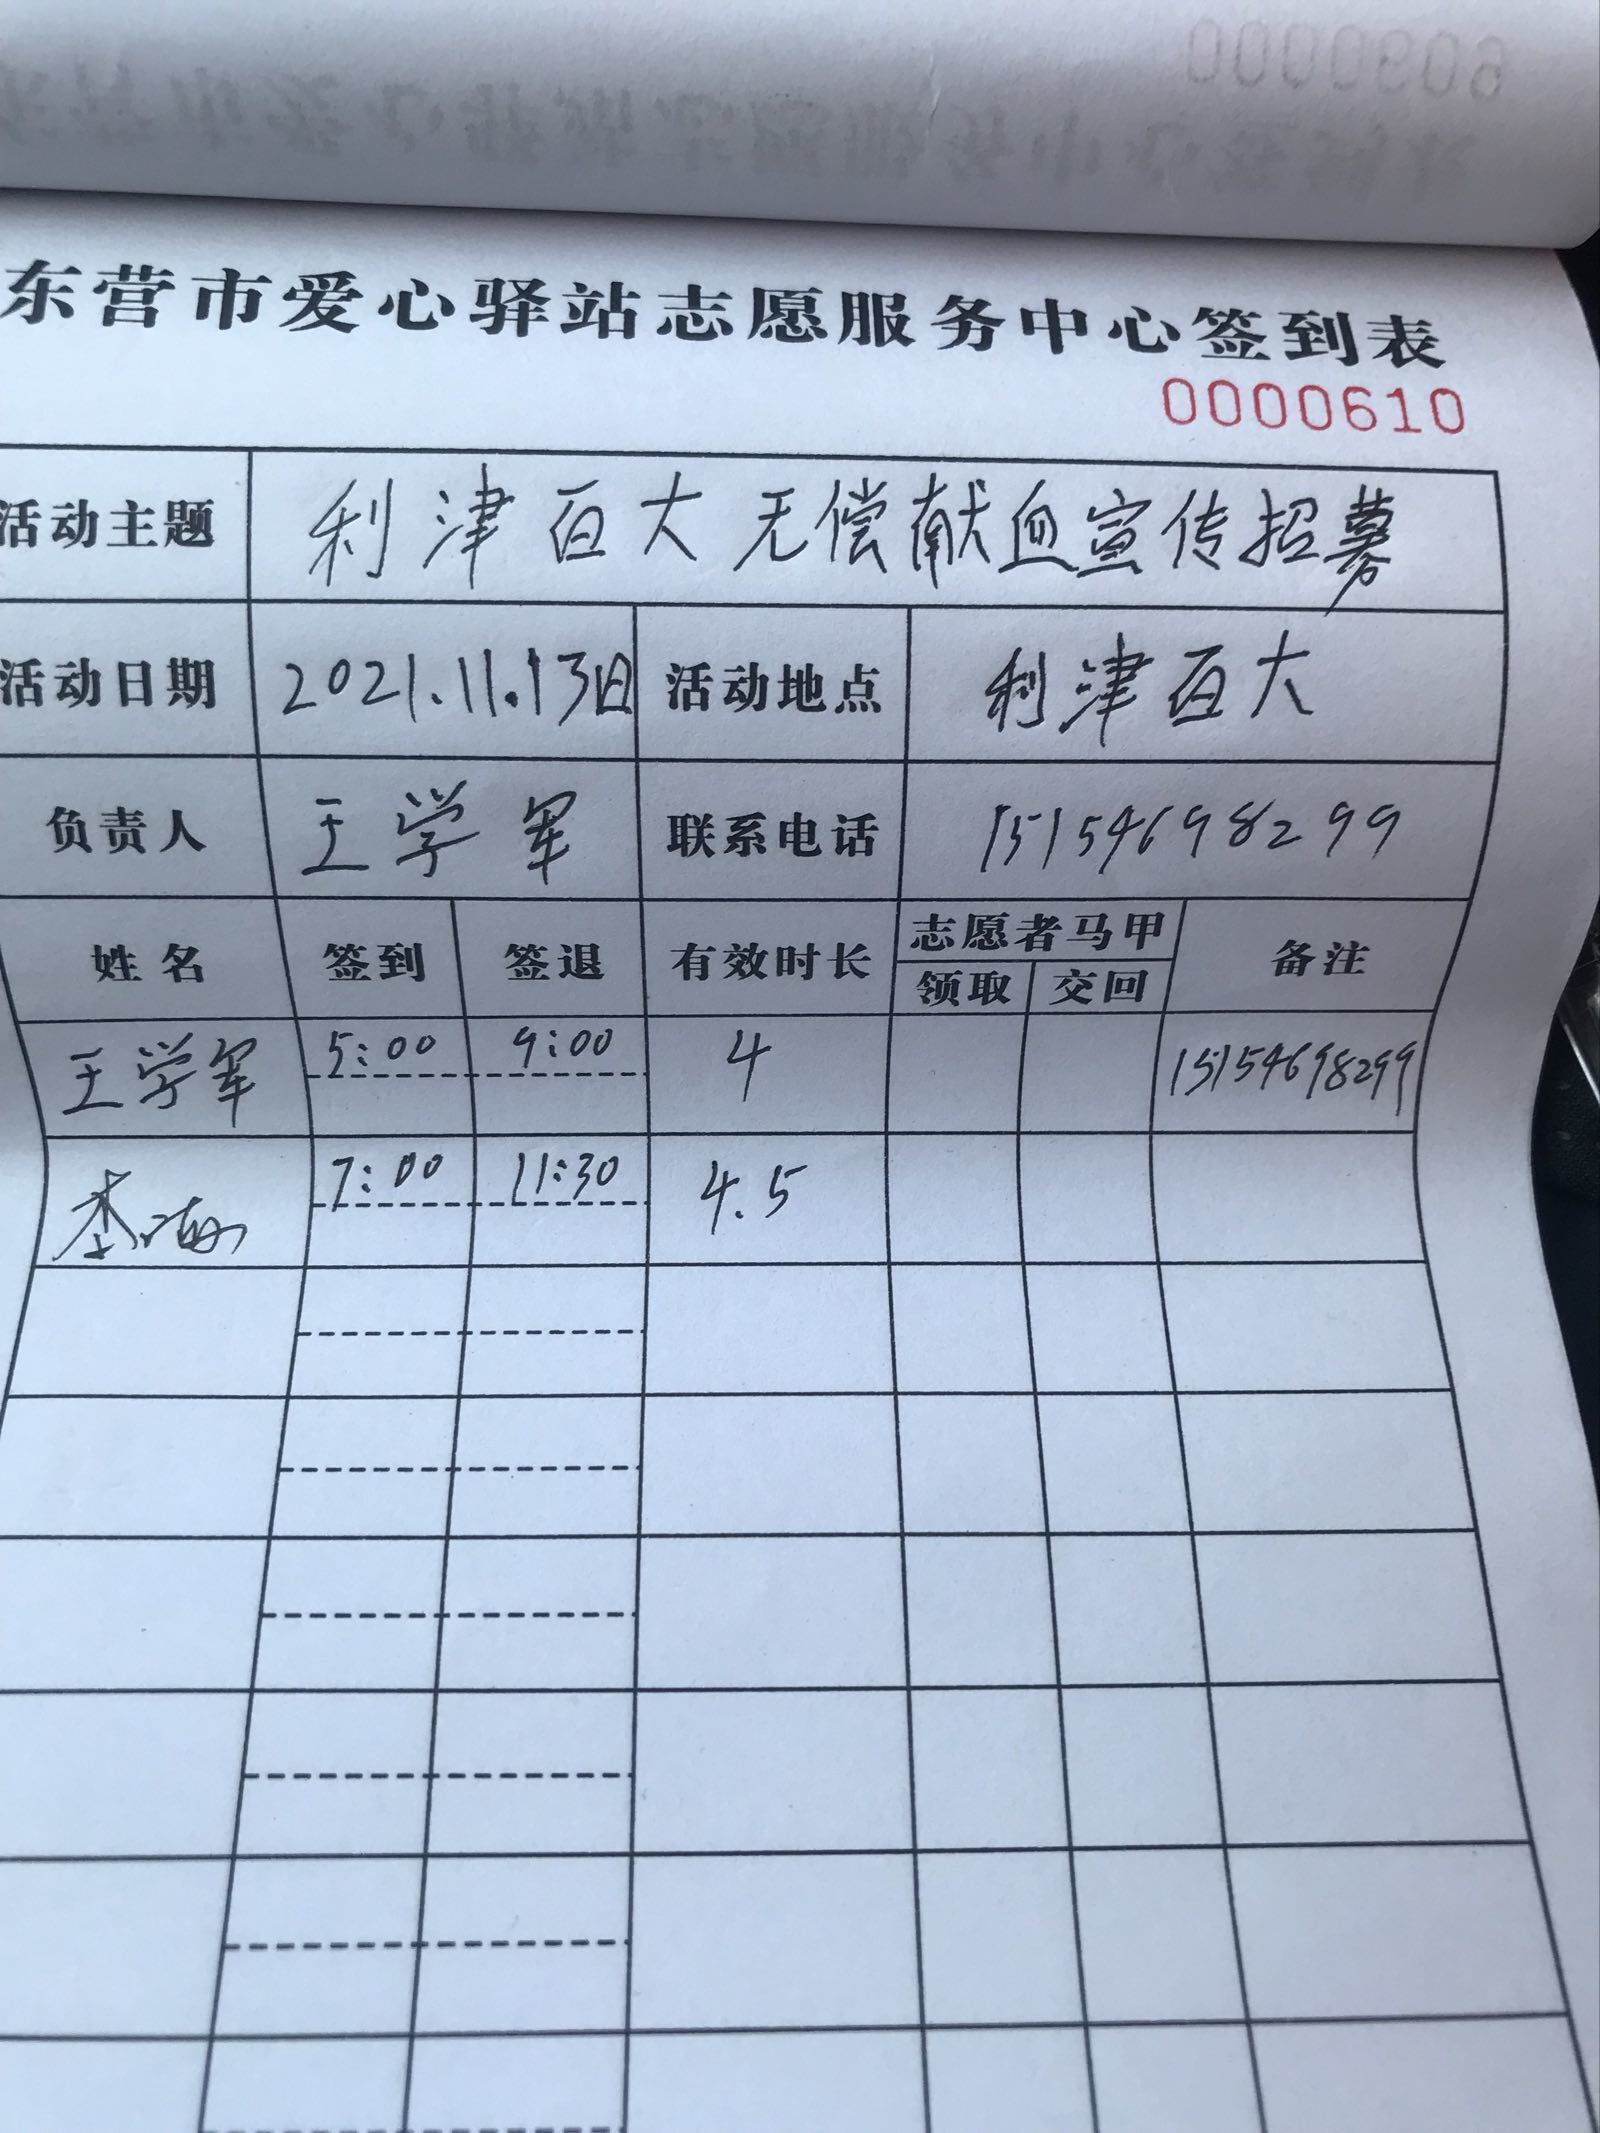 东营市爱心驿站志愿服务中心签到表
0000610
活动主题 利津百大无偿献血宣传招募
活动日期 2021.11.13日 活动地点 利津百大
负责人 王学军 联系电话 15154698299
姓名 签到 签退 有效时长 志愿者马甲 备注
领取 交回
王学军 5:00 9:00 4 15154698299
李海 7:00 11:30 4.5